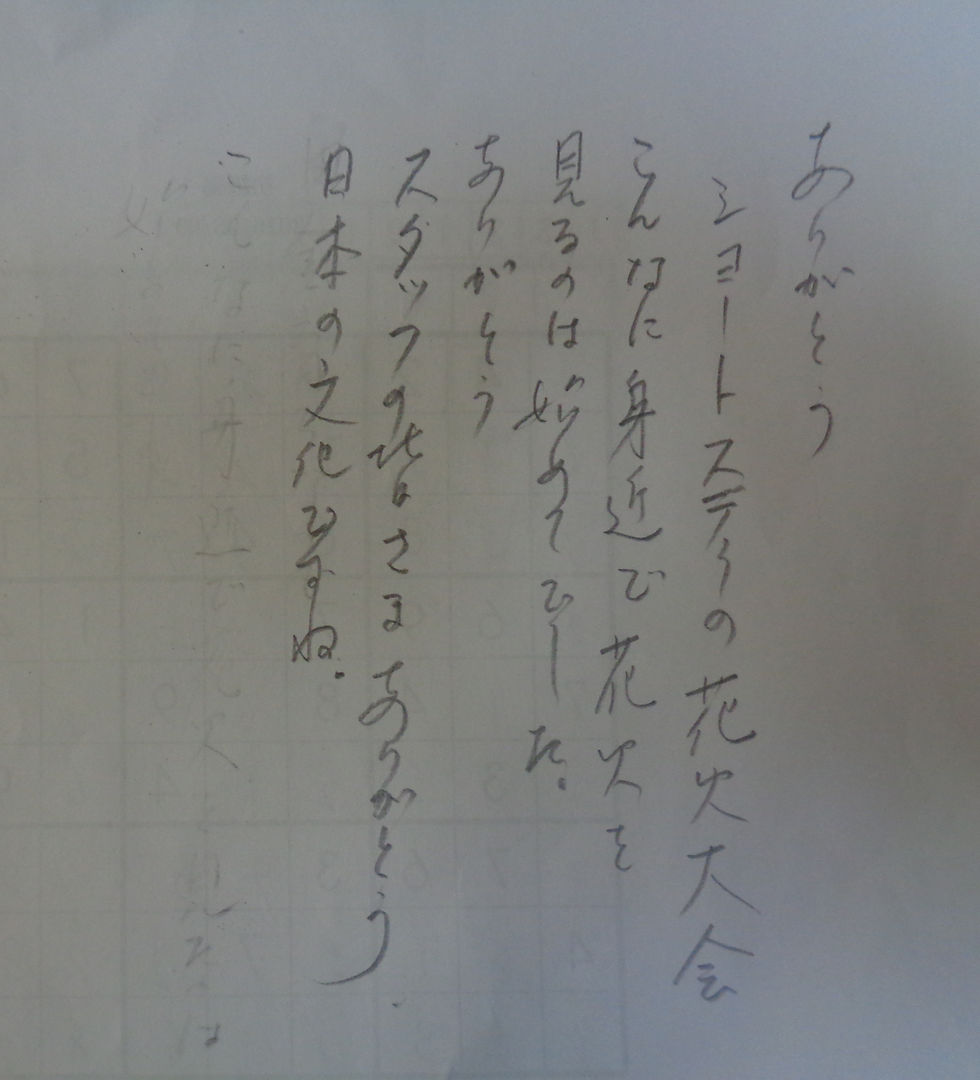 ありがとう
ショートステイの花火大会
こんなに身近で花火を
見るのは始めてでした。
ありがとう
スタッフの皆さまありがとう
日本の文化ですね。